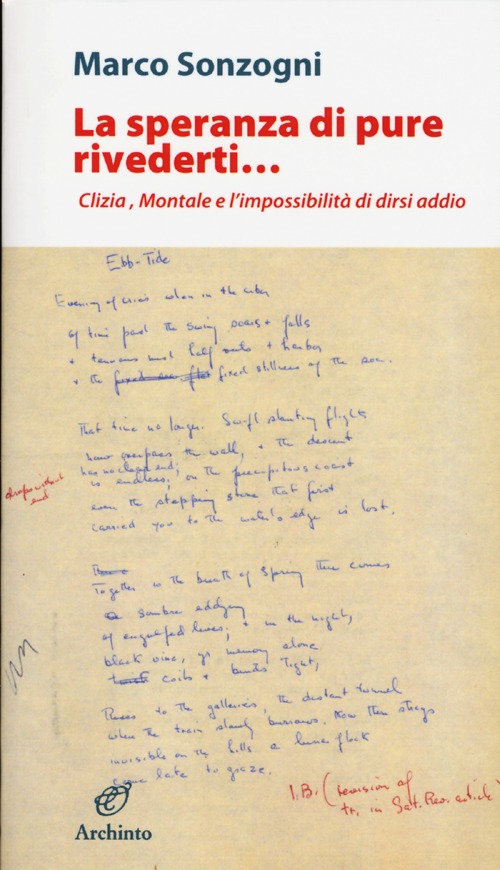 Marco Sonzogni
La speranza di pure
rivederti...
Clizia , Montale e l'impossibilità di dirsi addio
Ebb-Tide
Evening of cries when in the
of time past the swing soars + falls
+ half + harbor
+ the fixed stillness of the sea.
That time no longer. Swift slanting flights
now overpass the wall, + the descent
has no end;
is endless; on the precipitous coast
drops without
end
even the stepping stone that first
carried you to the water's edge is lost.
Together w the breath of Spring there comes
a sombre eddying
of engulfed lives; + in the night,
black vine, yr memory alone
coils + binds tight,
to the galleries, the distant tunnel
when the train slowly burrows. Now then strays
invisible on the hills a lunar flock
come late to graze.
I.B. (revision of
tr. in Sat. Rev. article
Archinto